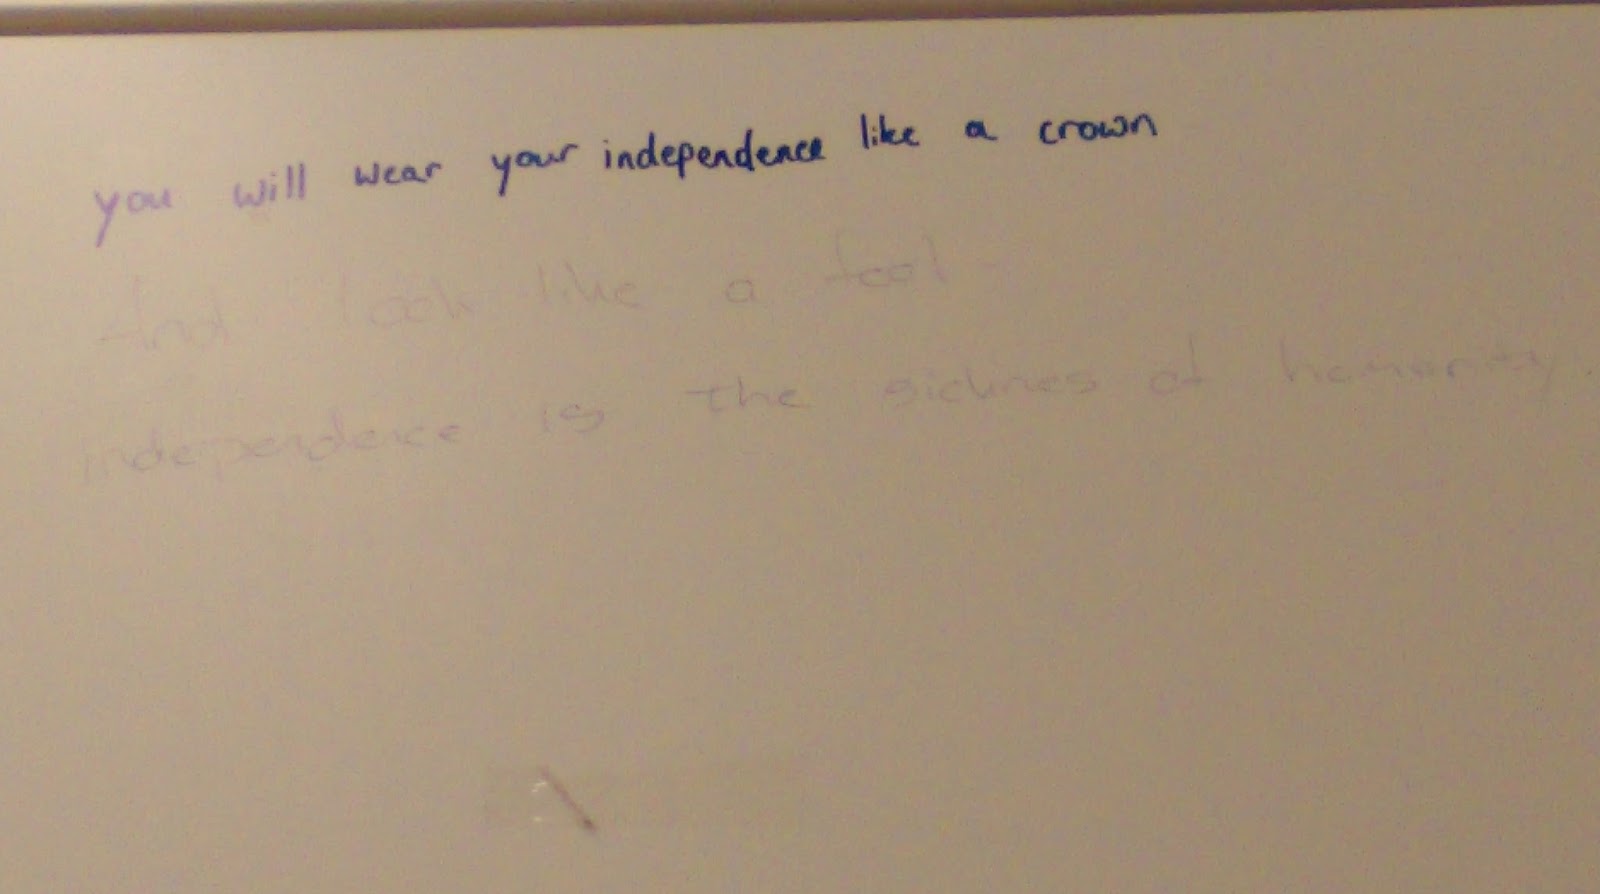 you will wear your independence like a crown
And look like a fool
independence is the sicknes of humanity.